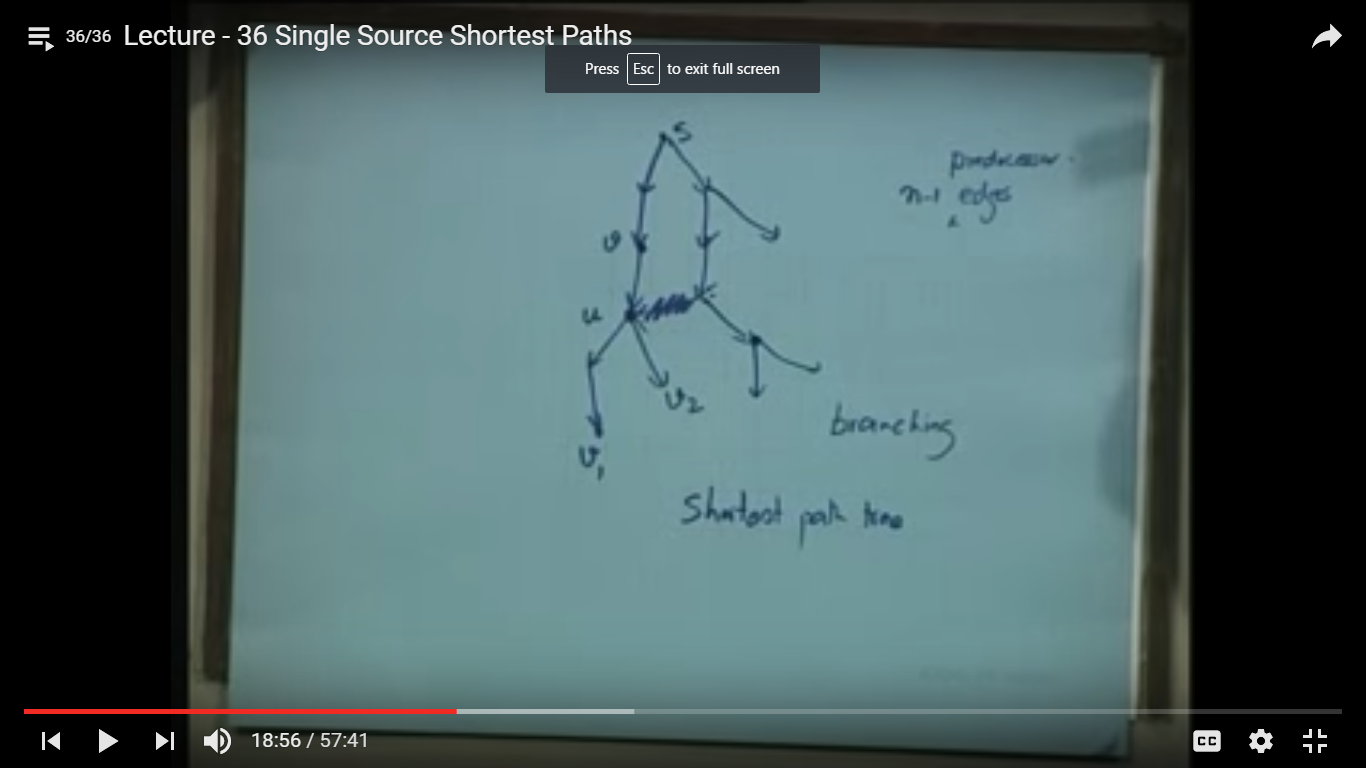 36/36 Lecture - 36 Single Source Shortest Paths
Press Esc to exit full screen
S
n-1 edges
v
u
v2
branching
v1
Shortest path tree
18:56 / 57:41
CC